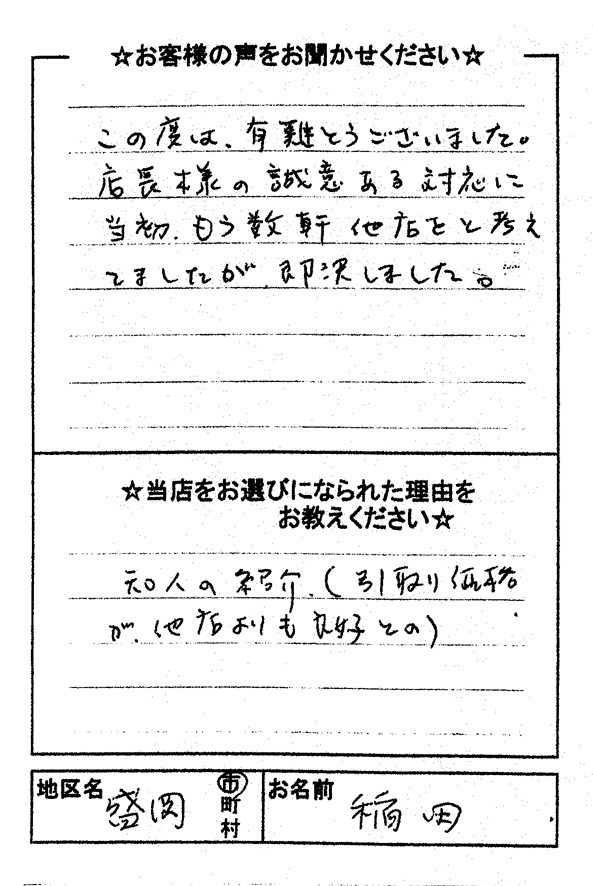 ☆お客様の声をお聞かせください☆
この度は、有難とうございました。
店長様の誠意ある対応に
当初、もう数軒他店をと考え
てましたが、即決しました。
☆当店をお選びになられた理由を
お教えください☆
知人の紹介、(引取り価格
が、他店よりも良好との)
地区名 盛岡 市 町 村 お名前 稲田